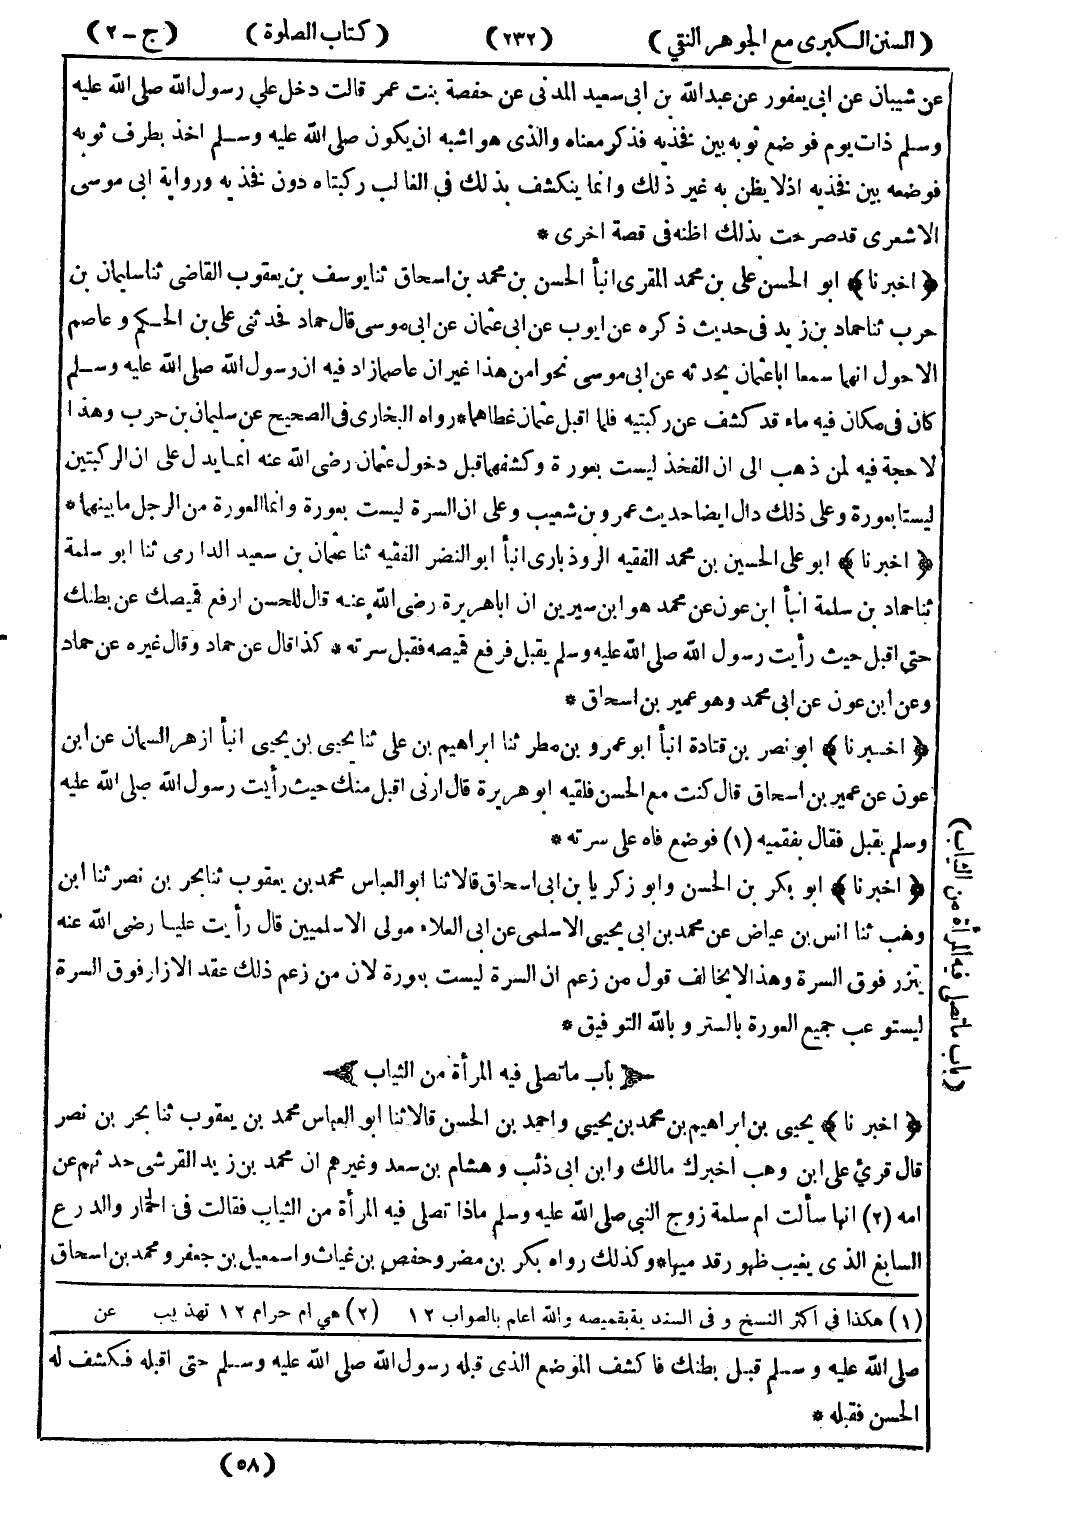 ( السنن الكبرى مع الجوهر النقي ) ( ٢٣٢ ) ( كتاب الصلوة ) ( ج - ٢ )
عن شيبان عن ابى يعفور عن عبد الله بن ابى سعيد المدنى عن حفصة بنت عمر قالت دخل علي رسول الله صلى الله عليه
وسلم ذات يوم فوضع ثوبه بين فخذيه فذكر معناه والذى هو اشبه ان يكون صلى الله عليه وسلم اخذ بطرف ثوبه
فوضعه بين فخذيه اذ لا يظن به غير ذلك وانما ينكشف بذلك فى الغالب ركبتاه دون فخذيه ورواية ابى موسى
الاشعرى قد صرحت بذلك اظنه فى قصة اخرى *
﴿ اخبرنا ﴾ ابو الحسن على بن محمد المقرى انبأ الحسن بن محمد بن اسحاق ثنا يوسف بن يعقوب القاضى ثنا سليمان بن
حرب ثنا حماد بن زيد فى حديث ذكره عن ايوب عن ابى عثمان عن ابى موسى قال حماد فحدثنى على بن الحكم و عاصم
الاحول انهما سمعا ابا عثمان يحدثه عن ابى موسى نحوا من هذا غير ان عاصما زاد فيه ان رسول الله صلى الله عليه وسلم
كان فى مكان فيه ماء قد كشف عن ركبتيه فلما اقبل عثمان غطاهما * رواه البخارى فى الصحيح عن سليمان بن حرب وهذا
لا حجة فيه لمن ذهب الى ان الفخذ ليست بعورة وكشفهما قبل دخول عثمان رضى الله عنه انما يدل على ان الركبتين
ليستا بعورة وعلى ذلك دال ايضا حديث عمرو بن شعيب وعلى ان السرة ليست بعورة وانما العورة من الرجل ما بينهما *
﴿ اخبرنا ﴾ ابو على الحسين بن محمد الفقيه الروذبارى انبأ ابو النضر الفقيه ثنا عثمان بن سعيد الدارمى ثنا ابو سلمة
ثنا حماد بن سلمة انبأ ابن عون عن محمد هو ابن سيرين ان ابا هريرة رضى الله عنه قال للحسن ارفع قميصك عن بطنك
حتى اقبل حيث رأيت رسول الله صلى الله عليه وسلم يقبل فرفع قميصه فقبل سرته * كذا قال عن حماد وقال غيره عن حماد
وعن ابن عون عن ابى محمد وهو عمير بن اسحاق *
﴿ اخبرنا ﴾ ابو نصر بن قتادة انبأ ابو عمرو بن مطر ثنا ابراهيم بن على ثنا يحيى بن يحيى انبأ ازهر السمان عن ابن
عون عن عمير بن اسحاق قال كنت مع الحسن فلقيه ابو هريرة قال ارنى اقبل منك حيث رأيت رسول الله صلى الله عليه
وسلم يقبل فقال بقميه (١) فوضع فاه على سرته *
﴿ اخبرنا ﴾ ابو بكر بن الحسن وابو زكريا بن ابى اسحاق قالا ثنا ابو العباس محمد بن يعقوب ثنا بحر بن نصر ثنا ابن
وهب ثنا انس بن عياض عن محمد بن ابى يحيى الاسلمى عن ابى العلاء مولى الاسلميين قال رأيت عليا رضى الله عنه
يتزر فوق السرة وهذا لا يخالف قول من زعم ان السرة ليست بعورة لان من زعم ذلك عقد الازار فوق السرة
ليستوعب جميع العورة بالستر وبالله التوفيق *
باب ما تصلى فيه المرأة من الثياب
﴿ اخبرنا ﴾ يحيى بن ابراهيم بن محمد بن يحيى واحمد بن الحسن قالا ثنا ابو العباس محمد بن يعقوب ثنا بحر بن نصر
قال قرئ على ابن وهب اخبرك مالك وابن ابى ذئب وهشام بن سعد وغيرهم ان محمد بن زيد القرشى حدثهم عن
امه (٢) انها سألت ام سلمة زوج النبى صلى الله عليه وسلم ماذا تصلى فيه المرأة من الثياب فقالت فى الخمار والدرع
السابغ الذى يغيب ظهور قدميها * وكذلك رواه بكر بن مضر وحفص بن غياث واسمعيل بن جعفر ومحمد بن اسحاق
(١) هكذا في اكثر النسخ و فى السندية بقميصه والله اعلم بالصواب ١٢ (٢) هي ام حرام ١٢ تهذيب عن
صلى الله عليه وسلم قبل بطنك فاكشف الموضع الذى قبله رسول الله صلى الله عليه وسلم حتى اقبله فكشف له
الحسن فقبله *
( ٥٨ )
( باب ما تصلى فيه المرأة من الثياب )